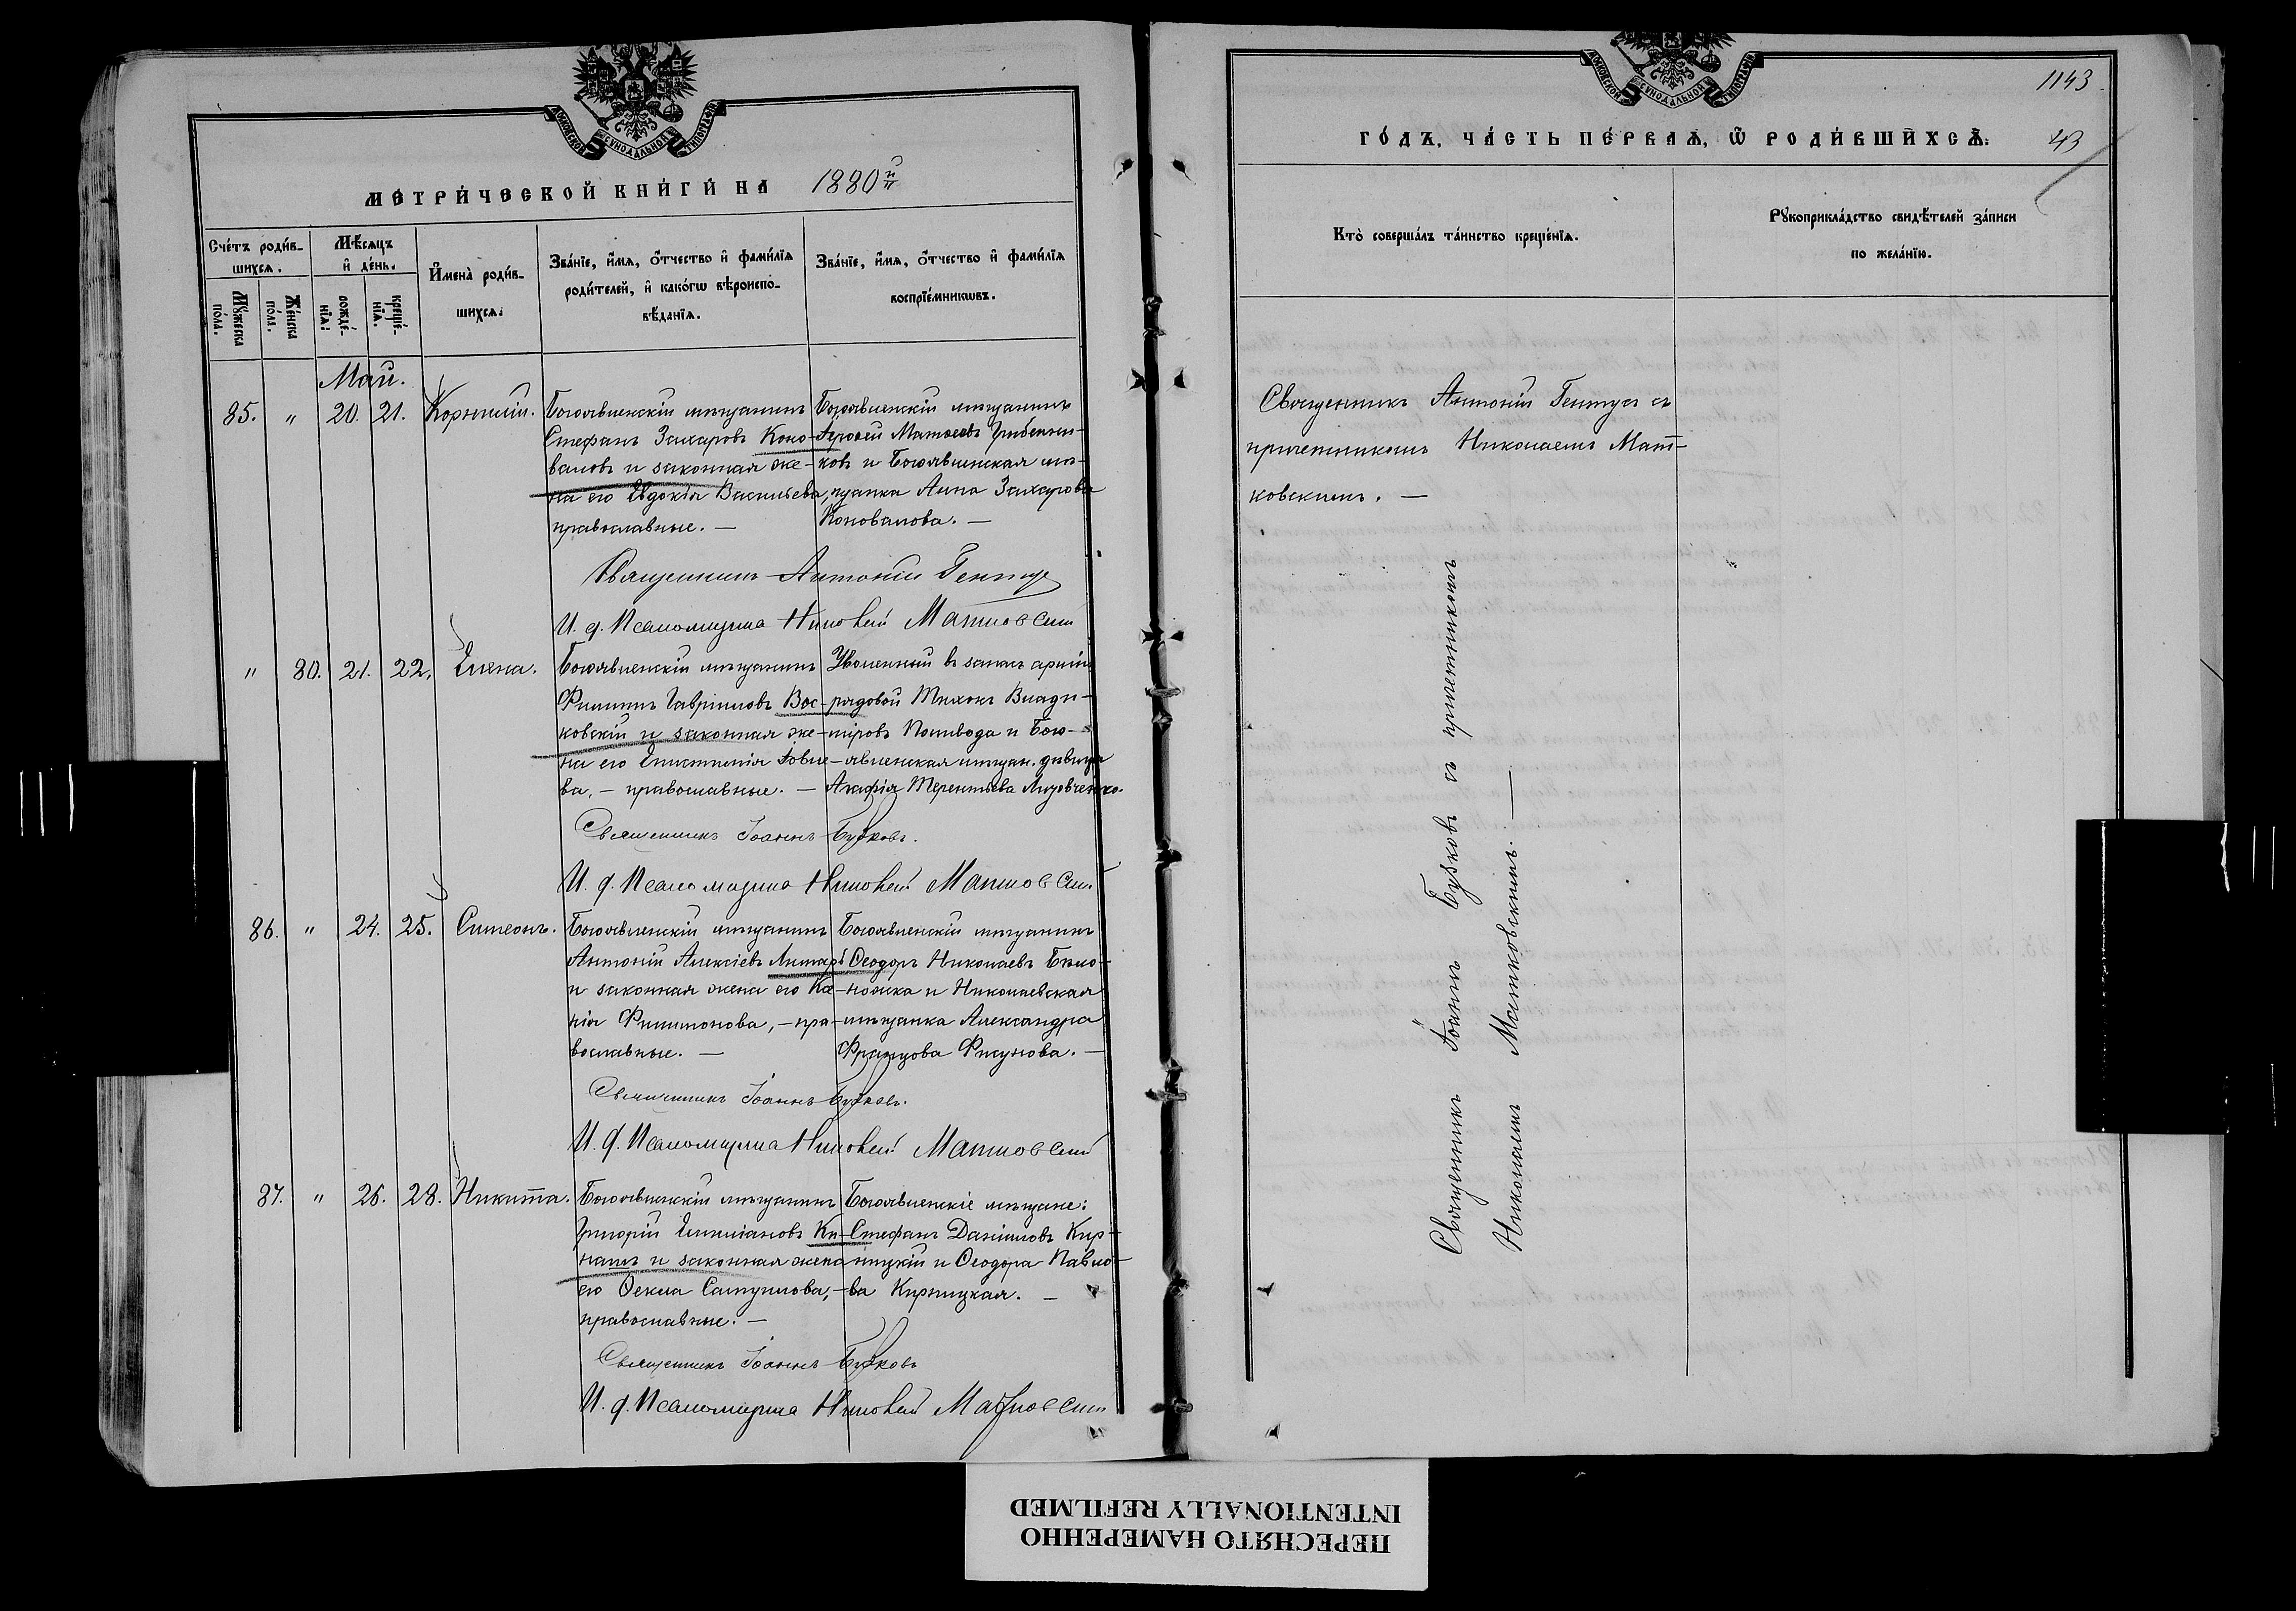 МОСКОВСКОЙ СУНОДАЛЬНОЙ ТИПОГРАФІИ
МЕТРИ́ЧЕСКОЙ КНИ́ГИ НА 1880й
Сче́тъ роди́в-
шихся.
Мѣ́сяцъ
и҆ де́нь.
И҆мена̀ роди́в-
шихся.
Зва́нїе, и҆́мя, ѻ҆́тчество и҆ фами́лїя
роди́телей, и҆ како́гѡ вѣроиспо-
вѣ́данїя.
Зва́нїе, и҆́мя, ѻ҆́тчество и҆ фами́лїя
воспрїе́мникѡвъ.
Мꙋ́жеска
по́ла.
Же́нска
по́ла.
рожде́-
нїя.
креще́-
нїя.
Май.
85. " 20. 21. Корнилій.
Богоявленскій мѣщанинъ
Стефанъ Захаровъ Коно-
валовъ и законная же-
на его Евдокія Васильева,
православные. —
Богоявленскій мѣщанинъ
Іероѳей Матѳеевъ Гребенни-
ковъ и Богоявленская мѣ-
щанка Анна Захарова
Коновалова. —
Священникъ Антоній Гентуш
И. д. Псаломщика Николай Матковскій
" 80. 21. 22. Елена.
Богоявленскій мѣщанинъ
Филиппъ Гавріиловъ Вос-
ковскій и законная же-
на его Епистимія Іовле-
ва, — православные. —
Уволенный въ запасъ арміи
рядовой Тихонъ Влади-
міровъ Поливода и Бого-
явленская мѣщан. дѣвица
Агафія Терентьева Лизовченко.
Священникъ Іоаннъ Бузковъ.
И. д. Псаломщика Николай Матковскій
86. " 24. 25. Симеонъ.
Богоявленскій мѣщанинъ
Антоній Алексіевъ Лимарь
и законная жена его Ксе-
нія Филимонова, — пра-
вославные. —
Богоявленскій мѣщанинъ
Ѳеодоръ Николаевъ Бѣло-
ножка и Николаевская
мѣщанка Александра
Францова Фисунова. —
Священникъ Іоаннъ Бузковъ.
И. д. Псаломщика Николай Матковскій
87. " 26. 28. Никита.
Богоявленскій мѣщанинъ
Григорій Емиліановъ Ки-
нашъ и законная жена
его Ѳекла Самуилова, —
православные. —
Богоявленскіе мѣщане:
Стефанъ Даніиловъ Кир-
ницкій и Ѳеодора Павло-
ва Кирницкая. —
Священникъ Іоаннъ Бузковъ
И. д. Псаломщика Николай Матковскій
МОСКОВСКОЙ СУНОДАЛЬНОЙ ТИПОГРАФІИ
1143
ГО́ДЪ, ЧА́СТЬ ПЕ́РВАЯ, Ѿ РОДИ́ВШИХСЯ. 43
Кто̀ соверша́лъ та́инство креще́нїя.
Рꙋкоприкла́дство свидѣ́телей за́писи
по жела́нїю.
Священникъ Антоній Гентуш съ
причетникомъ Николаемъ Мат-
ковскимъ. —
Священникъ Іоаннъ Бузковъ съ причетникомъ
Николаемъ Матковскимъ. —
ПЕРЕСНЯТО НАМЕРЕННО
INTENTIONALLY REFILMED